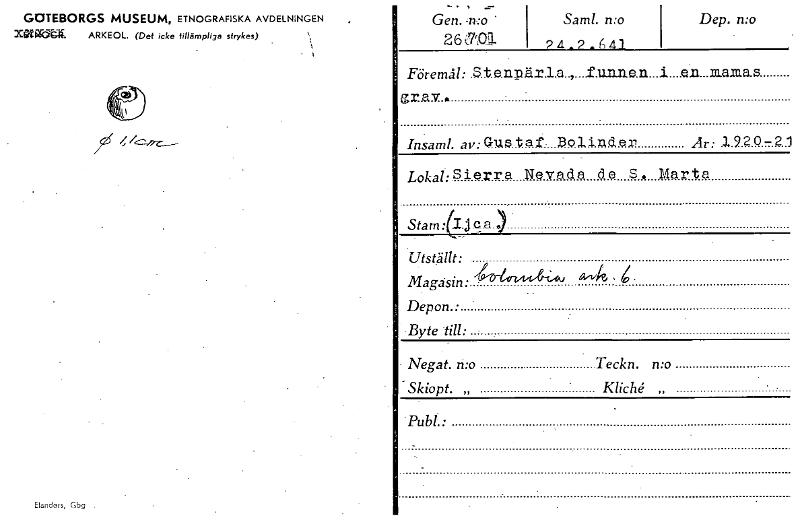 GÖTEBORGS MUSEUM, ETNOGRAFISKA AVDELNINGEN
ARKEOL. (Det icke tillämpliga strykes)
ø 1,1 cm
Elanders, Gbg
Gen. n:o Saml. n:o Dep. n:o
26701 24.2.641
Föremål: Stenpärla, funnen i en mamas
grav.
Insaml. av: Gustaf Bolinder År: 1920-21
Lokal: Sierra Nevada de S. Marta
Stam: (Ijca.)
Utställt:
Magasin: Colombia ark. 6.
Depon.:
Byte till:
Negat. n:o Teckn. n:o
Skiopt. „ Kliché „
Publ.: